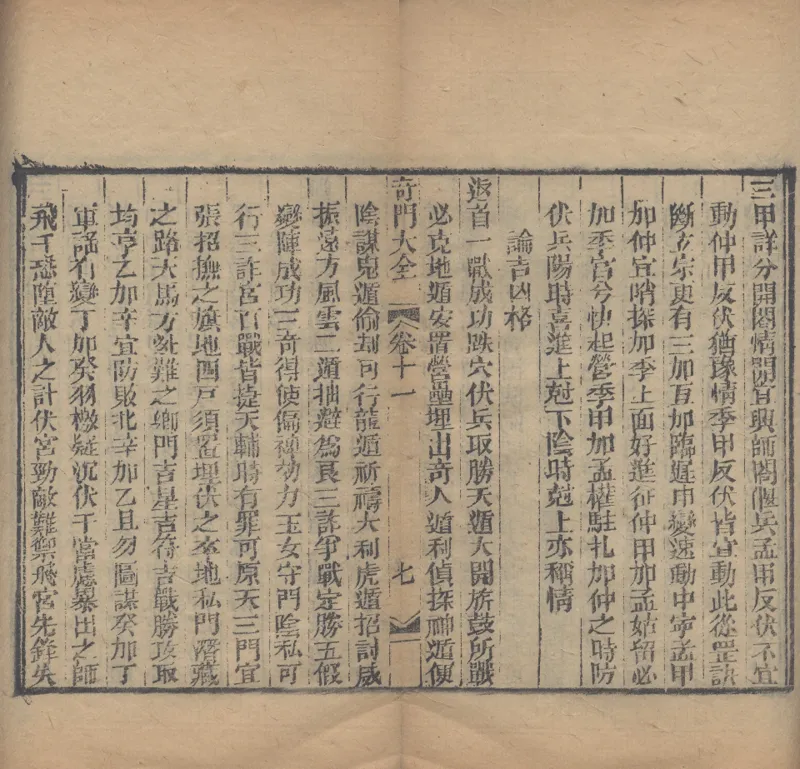 三甲詳分開闔情開宜興師闔偃兵孟甲反伏不宜
動仲甲反伏猶豫情季甲反伏皆宜動此從罡訣
斷玄宗更有三加互加臨遲中變速動中寧孟甲
加仲宜哨探加季上面好進征仲甲加孟姑留必
加季宮兮快起營季甲加孟權駐扎加仲之時防
伏兵陽時喜進上尅下陰時尅上亦稱情
論吉凶格
返首一戰成功跌穴伏兵取勝天遁大開旂鼓所戰
必克地遁安置營壘埋出奇人遁利偵探神遁便
奇門大全 卷十一 七
陰謀鬼遁偷刼可行龍遁祈禱大利虎遁招討威
振遠方風雲二遁抽避為良三詐爭戰定勝五假
變陣成功三奇得使偏裨効力玉女守門陰私可
行三詐宮百戰皆捷天輔時有罪可原天三門宜
張招撫之旗地四戶須置埋伏之卒地私門潛藏
之路天馬方避難之鄉門吉星吉符吉戰勝攻取
均亨乙加辛宜防敗北辛加乙且勿圖謀癸加丁
軍謠有變丁加癸羽檄疑沉伏干當慮暴出之師
飛干恐墮敵人之計伏宮勁敵難禦飛宮先鋒失